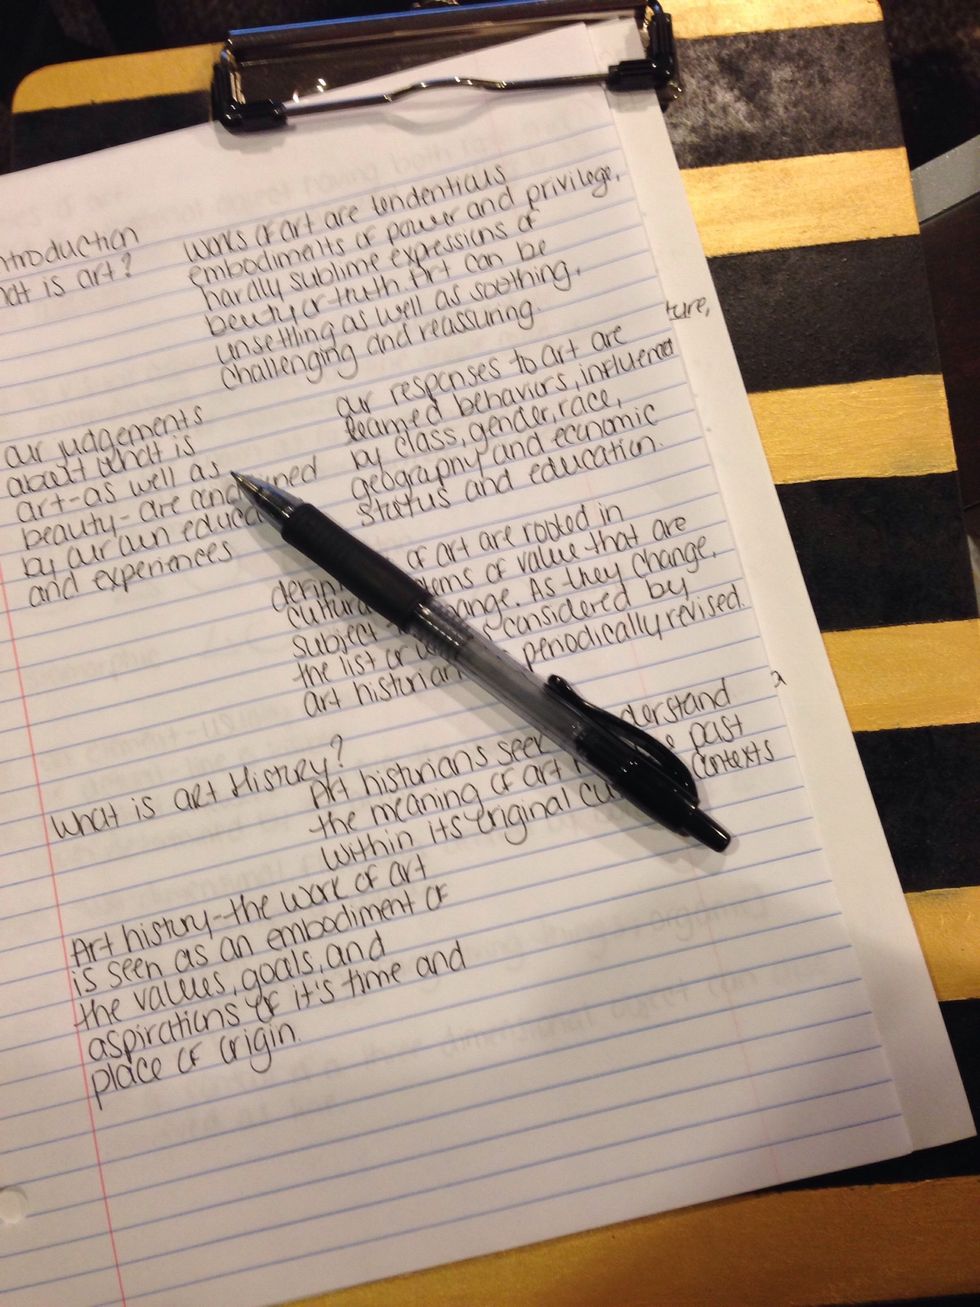 ntroduction
hat is art?
works of art are tendentious
embodiments of power and privilege,
hardly sublime expressions of
beauty or truth. Art can be
unsettling as well as soothing,
challenging and reassuring.
ture,
our judgements
about what is
art-as well as
beauty- are
by our own educa
and experiences
our responses to art are
learned behaviors, influenced
by class, gender, race,
geography and economic
status and education.
defin of art are rooted in
cultura ems of value that are
subject ange. As they change,
the list of considered by
art historian periodically revised.
a
What is art History?
Art historians seek derstand
the meaning of art past
within its original cu contexts
Art history-the work of art
is seen as an embodiment of
the values, goals, and
aspirations of it's time and
place of origin.